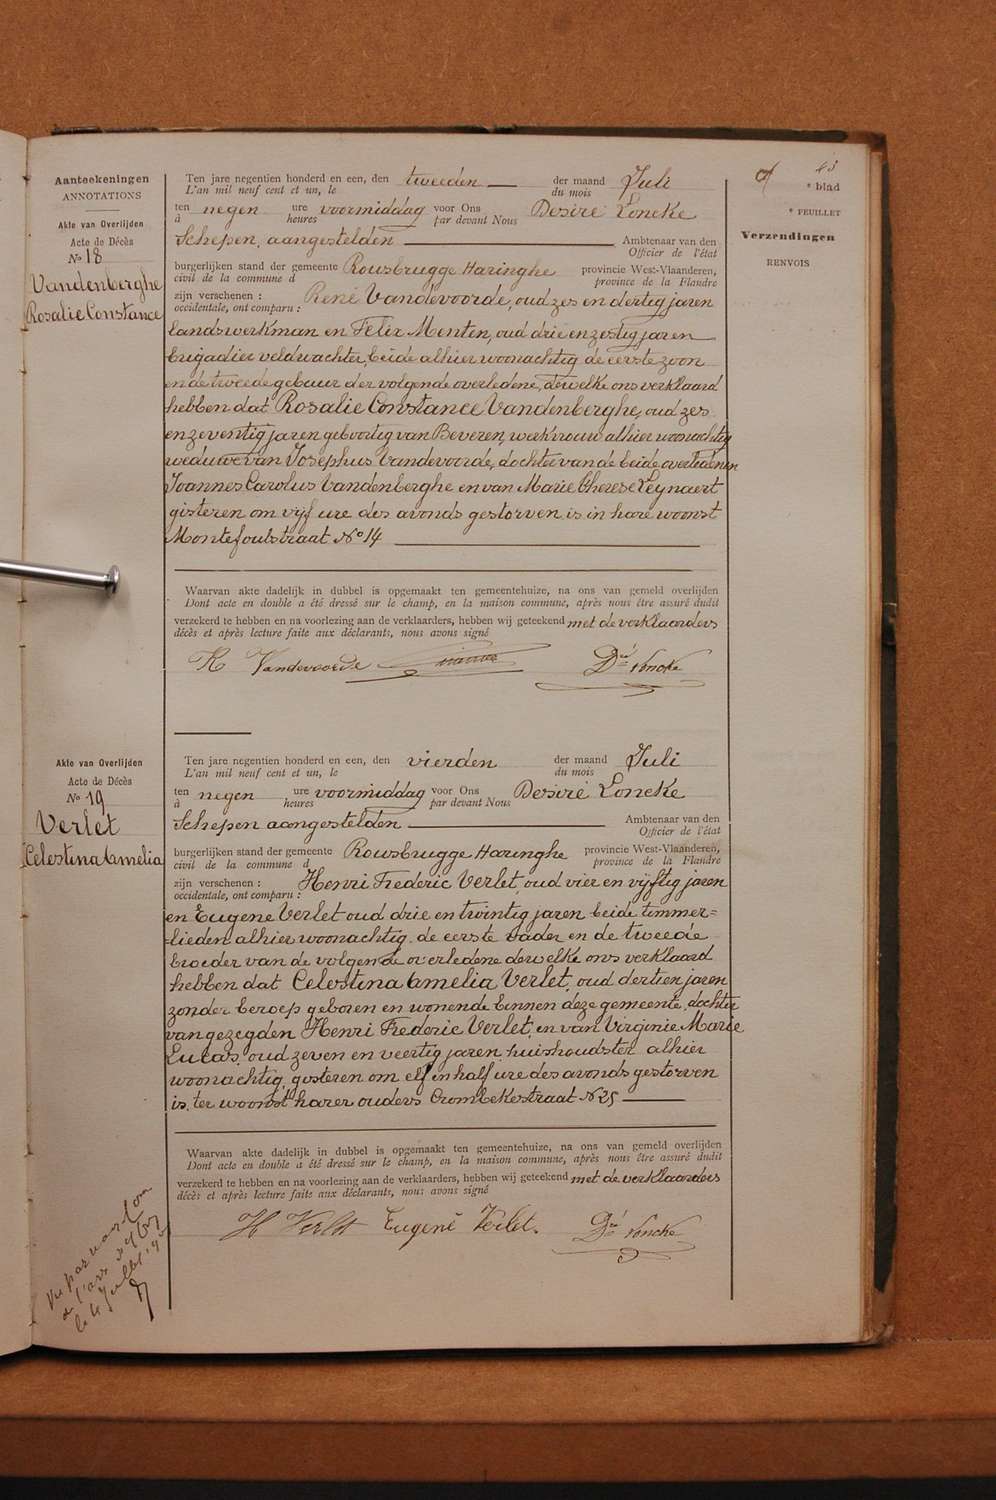 Aanteekeningen
ANNOTATIONS
Akte van Overlijden
Acte de Décès
No 18
Vandenberghe
Rosalie Constance
Ten jare negentien honderd en een, den tweeden der maand Juli
L'an mil neuf cent et un, le du mois
ten negen ure voormiddag voor Ons Desiré Loncke
à heures par devant Nous
Schepen, aangestelden Ambtenaar van den
Officier de l'état
burgerlijken stand der gemeente Rousbrugge Haringhe provincie West-Vlaanderen,
civil de la commune d province de la Flandre
zijn verschenen : René Vandevoorde, oud zes en dertig jaren
occidentale, ont comparu :
landswerkman en Felix Menten, oud drie en zestig jaren
brigadier veldwachter, beide alhier woonachtig de eerste zoon
en de tweede gebuur der volgende overledene, dewelke ons verklaard
hebben dat Rosalie Constance Vandenberghe, oud zes
en zeventig jaren geboortig van Beveren, werkvrouw alhier woonachtig
weduwe van Josephus Vandevoorde, dochter van de beide overledenen
Joannes Carolus Vandenberghe en van Marie Therese Leynaert
gisteren om vijf ure des avonds gestorven is in hare woonst
Montefoulstraat No 14
Waarvan akte dadelijk in dubbel is opgemaakt ten gemeentehuize, na ons van gemeld overlijden
Dont acte en double a été dressé sur le champ, en la maison commune, après nous être assuré dudit
verzekerd te hebben en na voorlezing aan de verklaarders, hebben wij geteekend met de verklaarders
décès et après lecture faite aux déclarants, nous avons signé
R Vandevoorde Dré Loncke
Akte van Overlijden
Acte de Décès
No 19
Verlet
Celestina Amelia
Ten jare negentien honderd en een, den vierden der maand Juli
L'an mil neuf cent et un, le du mois
ten negen ure voormiddag voor Ons Desiré Loncke
à heures par devant Nous
Schepen aangestelden Ambtenaar van den
Officier de l'état
burgerlijken stand der gemeente Rousbrugge Haringhe provincie West-Vlaanderen,
civil de la commune d province de la Flandre
zijn verschenen : Henri Frederic Verlet, oud vier en vijftig jaren
occidentale, ont comparu :
en Eugene Verlet oud drie en twintig jaren beide timmer=
=lieden alhier woonachtig de eerste vader en de tweede
broeder van de volgende overledene dewelke ons verklaard
hebben dat Celestina Amelia Verlet, oud dertien jaren
zonder beroep geboren en wonende binnen deze gemeente, dochter
van gezegden Henri Frederic Verlet, en van Virginie Marie
Lucas, oud zeven en veertig jaren, huishoudster alhier
woonachtig, gisteren om elf en half ure des avonds gestorven
is, ter woonst harer ouders Crombekestraat No 25
Waarvan akte dadelijk in dubbel is opgemaakt ten gemeentehuize, na ons van gemeld overlijden
Dont acte en double a été dressé sur le champ, en la maison commune, après nous être assuré dudit
verzekerd te hebben en na voorlezing aan de verklaarders, hebben wij geteekend met de verklaarders
décès et après lecture faite aux déclarants, nous avons signé
H Verlet Eugené Verlet. Dré Loncke
Vu par
de l'arr
le 4 Juillet
43
* blad
* FEUILLET
Verzendingen
RENVOIS